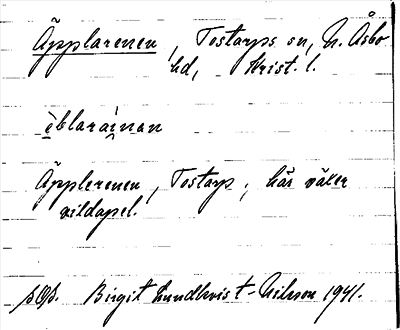 Äpplarenen, Tostarps sn, N. Åsbo
hd, Krist. l.
èblaráinan
Äpplerenen, Tostarp; här växer
vildapel.
Birgit Lundkvist-Nilsson 1941.